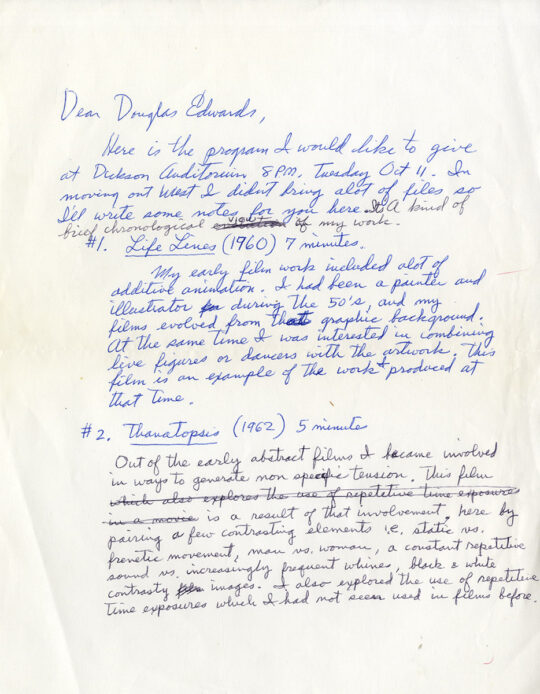 Dear Douglas Edwards,
Here is the program I would like to give
at Dickson Auditorium 8 P.M. Tuesday Oct 11. In
moving out West I didnt bring alot of files so
I'll write some notes for you here. Its A kind of
brief chronological view of my work.
#1. Life Lines (1960) 7 minutes.
My early film work included alot of
additive animation. I had been a painter and
illustrator during the 50's, and my
films evolved from that graphic background.
At the same time I was interested in combining
live figures or dancers with the artwork. This
film is an example of the work I produced at
that time.
#2. Thanatopsis (1962) 5 minutes
Out of the early abstract films I became involved
in ways to generate non specific tension. This film
which also explores the use of repetitive time exposures
in a movie is a result of that involvement, here by
pairing a few contrasting elements i.e. static vs.
frenetic movement, man vs. woman, a constant repetitive
sound vs. increasingly frequent whines, black & white
contrasty images. I also explored the use of repetitive
time exposures which I had not seen used in films before.